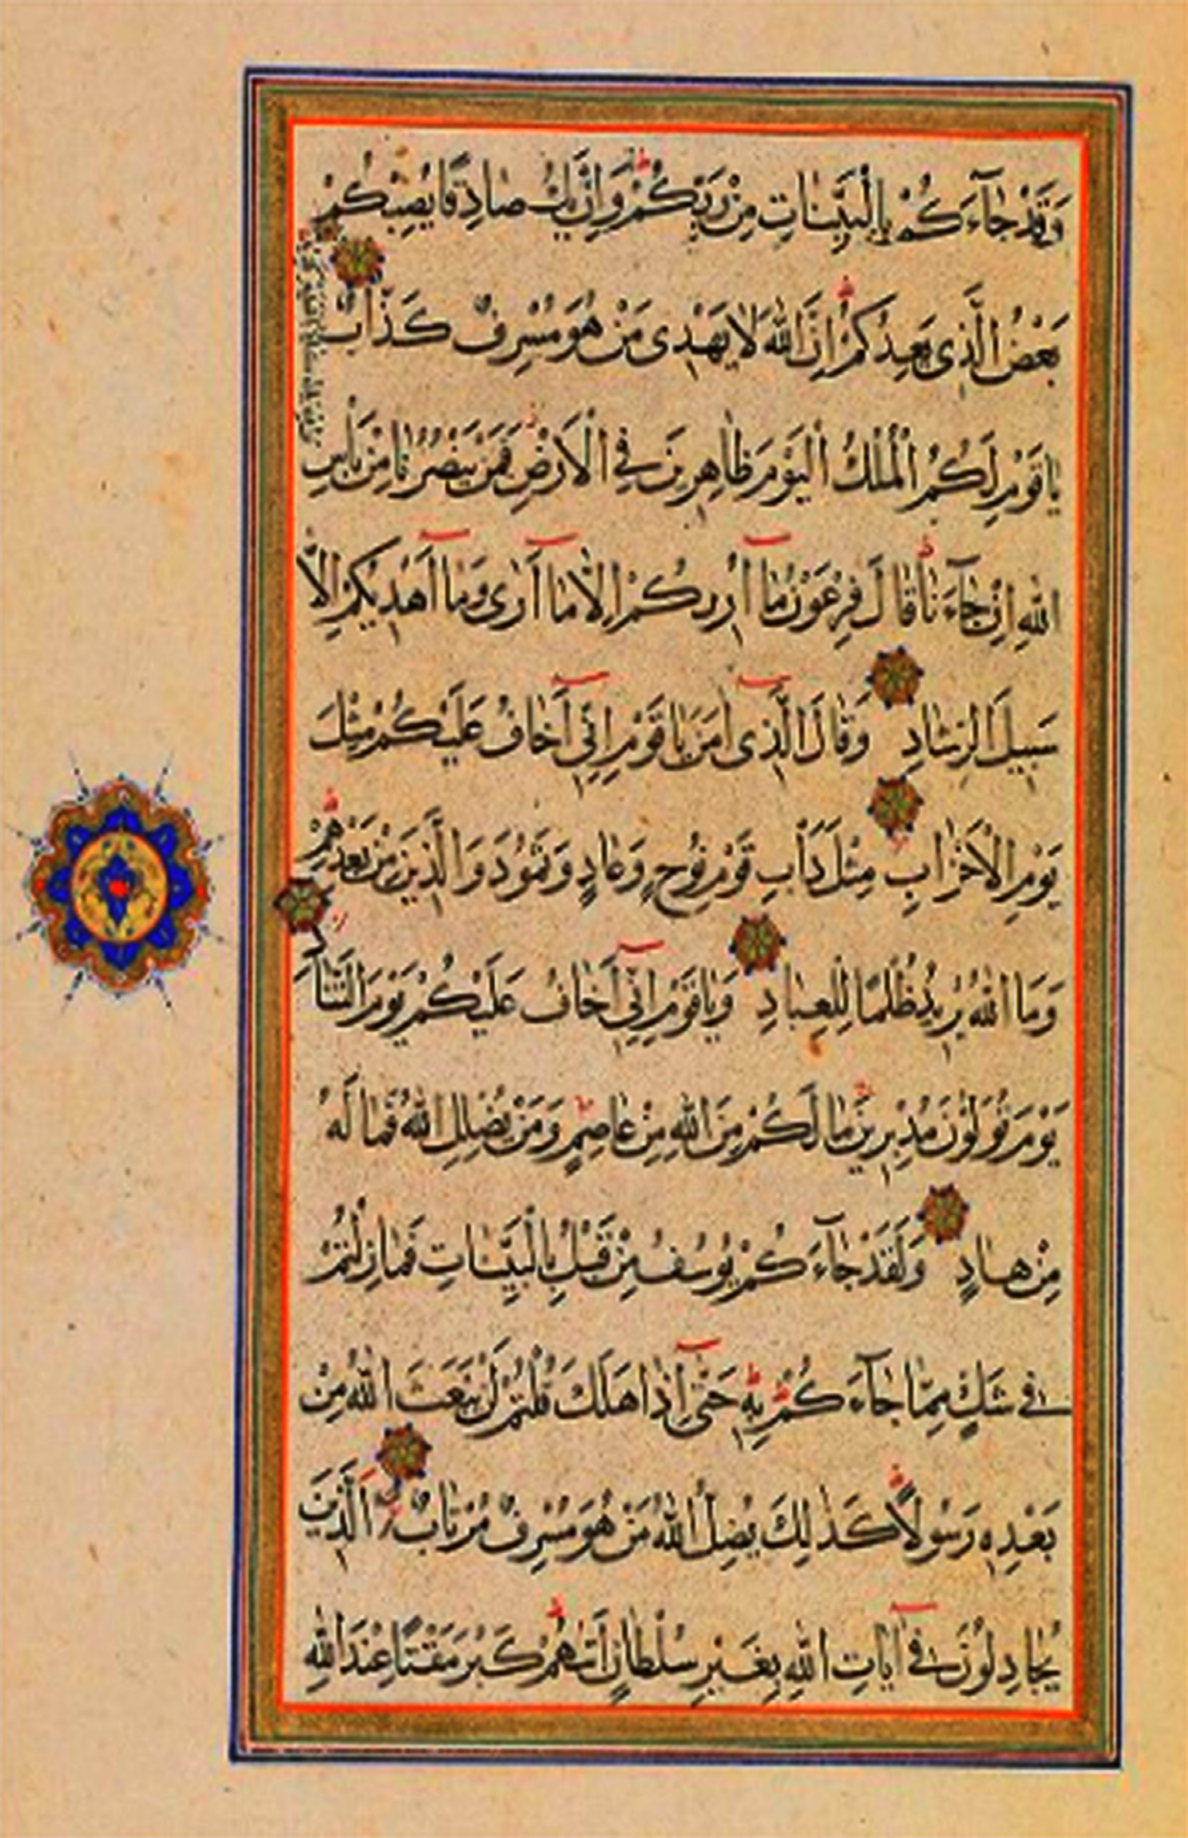 وَقَدْ جَآءَكُمْ بِالْبَيِّنَاتِ مِنْ رَبِّكُمْ وَاِنْ يَكُ صَادِقًا يُصِبْكُمْ
بَعْضُ الَّذِى يَعِدُكُمْ اِنَّ اللّٰهَ لَا يَهْدِى مَنْ هُوَ مُسْرِفٌ كَذَّابٌ
يَاقَوْمِ لَكُمُ الْمُلْكُ الْيَوْمَ ظَاهِرِينَ فِى الْاَرْضِ فَمَنْ يَنْصُرُنَا مِنْ بَأْسِ
اللّٰهِ اِنْ جَآءَنَا قَالَ فِرْعَوْنُ مَآ اُرِيكُمْ اِلَّا مَآ اَرٰى وَمَآ اَهْدِيكُمْ اِلَّا
سَبِيلَ الرَّشَادِ وَقَالَ الَّذِىٓ اٰمَنَ يَاقَوْمِ اِنِّىٓ اَخَافُ عَلَيْكُمْ مِثْلَ
يَوْمِ الْاَحْزَابِ مِثْلَ دَأْبِ قَوْمِ نُوحٍ وَعَادٍ وَثَمُودَ وَالَّذِينَ مِنْ بَعْدِهِمْ
وَمَا اللّٰهُ يُرِيدُ ظُلْمًا لِلْعِبَادِ وَيَاقَوْمِ اِنِّىٓ اَخَافُ عَلَيْكُمْ يَوْمَ التَّنَادِ
يَوْمَ تُوَلُّونَ مُدْبِرِينَ مَا لَكُمْ مِنَ اللّٰهِ مِنْ عَاصِمٍ وَمَنْ يُضْلِلِ اللّٰهُ فَمَا لَهُ
مِنْ هَادٍ وَلَقَدْ جَآءَكُمْ يُوسُفُ مِنْ قَبْلُ بِالْبَيِّنَاتِ فَمَا زِلْتُمْ
فِى شَكٍّ مِمَّا جَآءَكُمْ بِهِ حَتّٰىٓ اِذَا هَلَكَ قُلْتُمْ لَنْ يَبْعَثَ اللّٰهُ مِنْ
بَعْدِهِ رَسُولًا كَذٰلِكَ يُضِلُّ اللّٰهُ مَنْ هُوَ مُسْرِفٌ مُرْتَابٌ اَلَّذِينَ
يُجَادِلُونَ فِىٓ اٰيَاتِ اللّٰهِ بِغَيْرِ سُلْطَانٍ اَتٰيهُمْ كَبُرَ مَقْتًا عِنْدَ اللّٰهِ